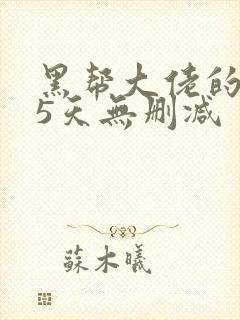 黑帮大佬的
5天無刪减
蘇木曦